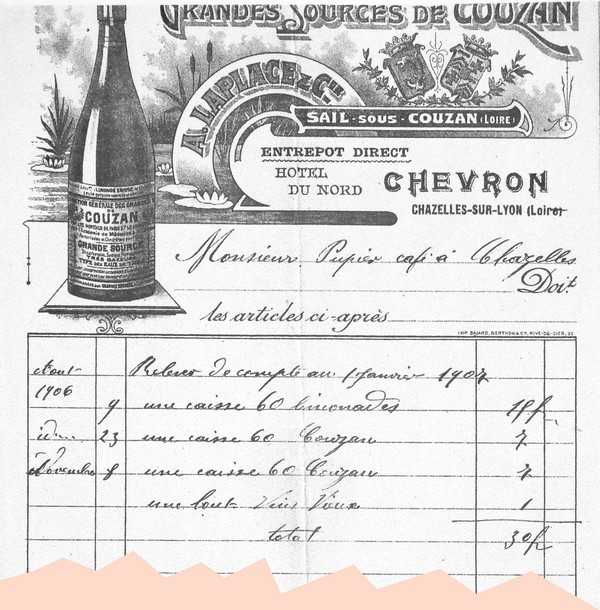 GRANDES SOURCES DE COUZAN
A. LAPLACE & Cie
SAIL-SOUS-COUZAN (LOIRE)
ENTREPOT DIRECT
HOTEL
DU NORD
CHEVRON
CHAZELLES-SUR-LYON (Loire)
COUZAN
GRANDE SOURCE
Monsieur Pupier café à Chazelles
Doit
les articles ci-après
IMP. BAJARD, BERTHON & Cie, RIVE-DE-GIER
Aout Relever de compte au 1 Janvier 1907
1906
9 une caisse 60 limonades 18 f
id 23 une caisse 60 Couzan 7
Novembre 8 une caisse 60 Couzan 7
une Vins Vieux 1
total 30 f